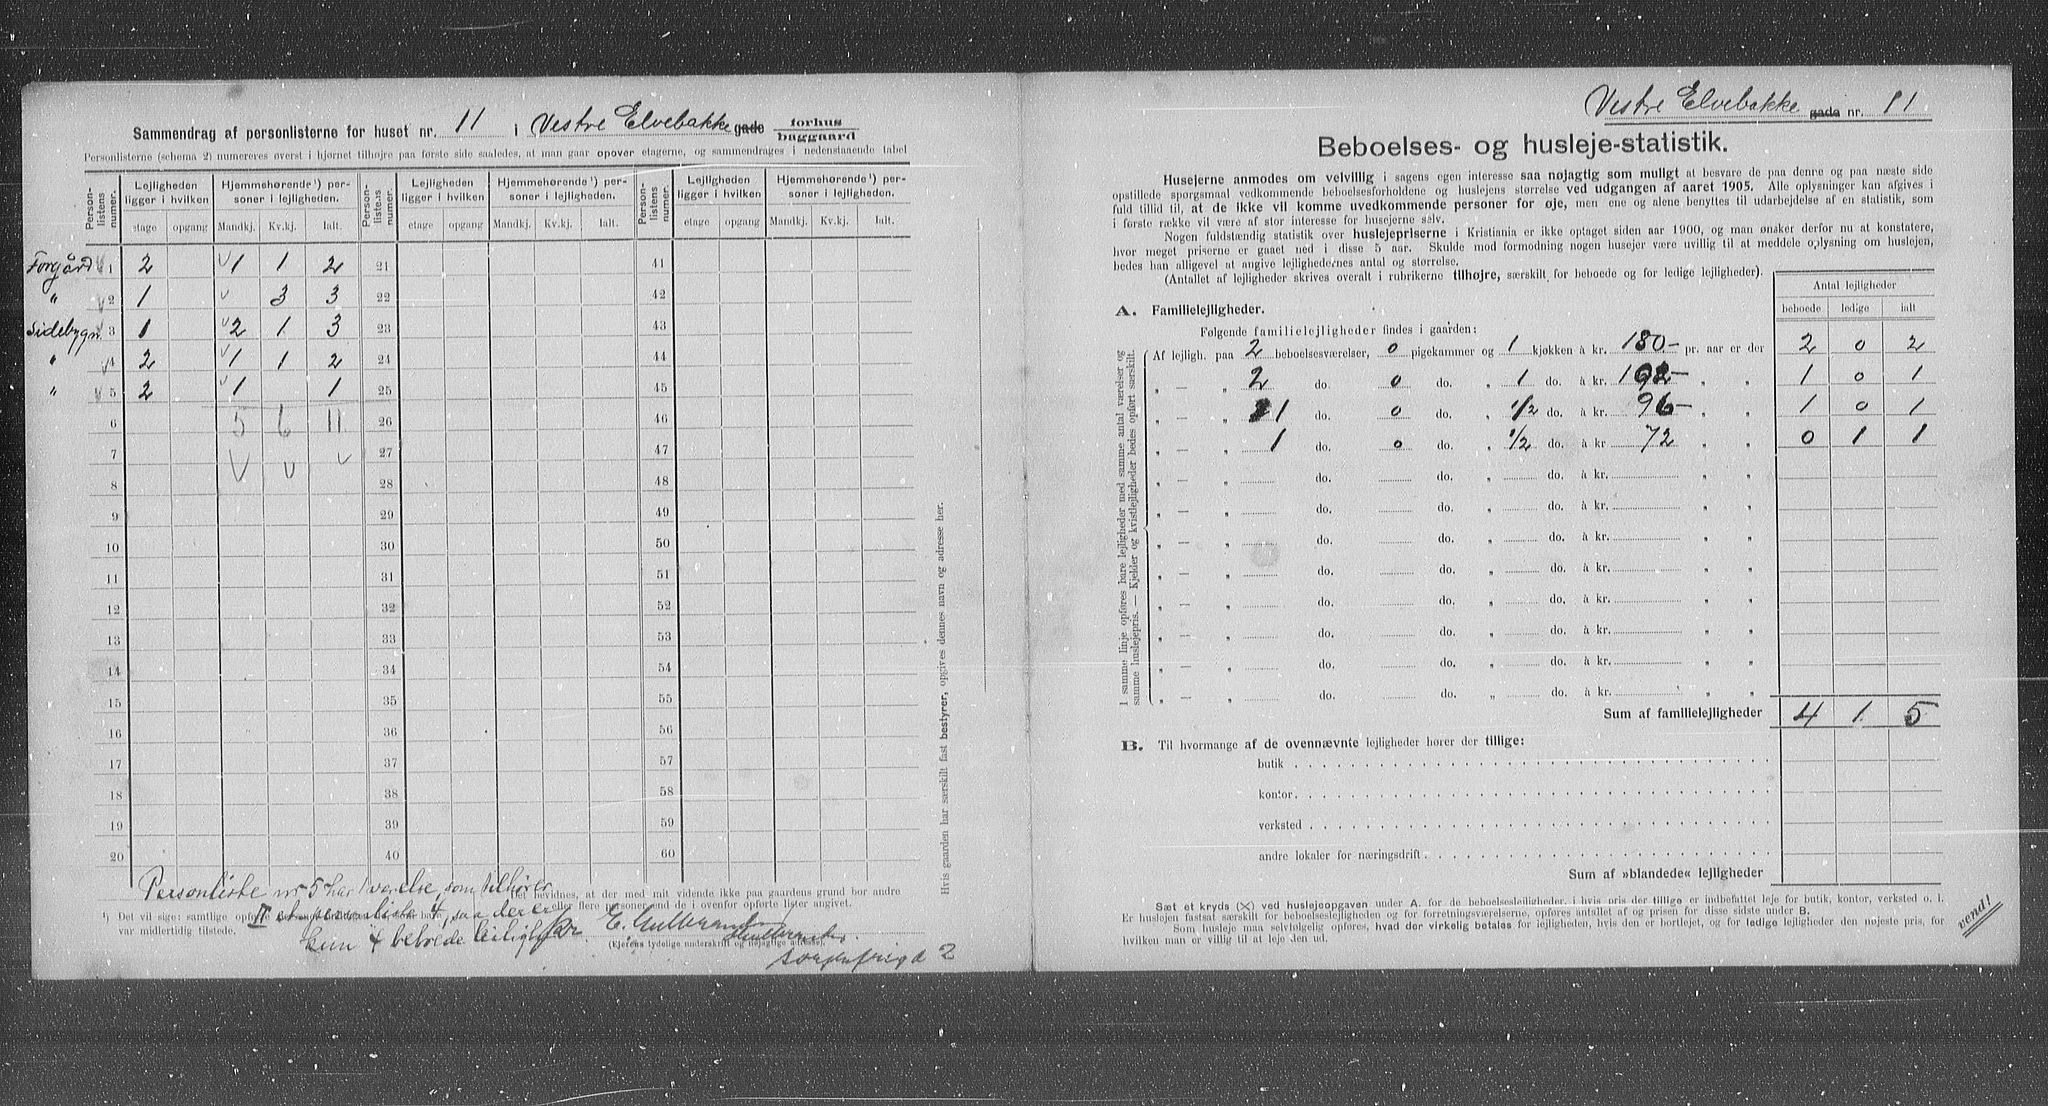 Sammendrag af personlisterne for huset nr. 11 i Vestre Elvebakke gade forhus baggaard
Personlisterne (schema 2) numereres øverst i hjørnet tilhøjre paa første side saaledes, at man gaar opover etagerne, og sammendrages i nedenstaaende tabel
Person-listens numer. Lejligheden ligger i hvilken Hjemmehørende ¹) personer i lejligheden. Person-listens numer. Lejligheden ligger i hvilken Hjemmehørende ¹) personer i lejligheden. Person-listens numer. Lejligheden ligger i hvilken Hjemmehørende ¹) personer i lejligheden.
etage opgang Mandkj. Kv.kj. Ialt. etage opgang Mandkj. Kv.kj. Ialt. etage opgang Mandkj. Kv.kj. Ialt.
Forgård 1 2 1 1 2 21 41
" 2 1 3 3 22 42
Sidebygn. 3 1 2 1 3 23 43
" 4 2 1 1 2 24 44
" 5 2 1 1 25 45
6 5 6 11 26 46
7 27 47
8 28 48
9 29 49
10 30 50
11 31 51
12 32 52
13 33 53
14 34 54
15 35 55
16 36 56
17 37 57
18 38 58
19 39 59
20 40 60
Hvis gaarden har særskilt fast bestyrer, opgives dennes navn og adresse her.
Personliste nr 5 har 1 værelse, som tilhører
Det bevidnes, at der med mit vidende ikke paa gaardens grund bor andre
eller flere personer end de i ovenfor opførte lister angivet.
¹) Det vil sige: samtlige
var midlertidig tilstede.
personliste 4, saa der er
kun 4 beboede leilighed
E. Gulbrandsen
(Ejerens tydelige underskrift og nøjagtige adresse).
Sorgenfrigd 2
Vestre Elvebakke gade nr. 11
Beboelses- og husleje-statistik.
Husejerne anmodes om velvillig i sagens egen interesse saa nøjagtig som muligt at besvare de paa denre og paa næste side
opstillede spørgsmaal vedkommende beboelsesforholdene og huslejens størrelse ved udgangen af aaret 1905. Alle oplysninger kan afgives i
fuld tillid til, at de ikke vil komme uvedkommende personer for øje, men ene og alene benyttes til udarbejdelse af en statistik, som
i første række vil være af stor interesse for husejerne sålv.
Nogen fuldstændig statistik over huslejepriserne i Kristiania er ikke optaget siden aar 1900, og man ønsker derfor nu at konstatere,
hvor meget priserne er gaaet ned i disse 5 aar. Skulde mod formodning nogen husejer være uvillig til at meddele oplysning om huslejen,
bedes han alligevel at angive lejlighedernes antal og størrelse.
(Antallet af lejligheder skrives overalt i rubrikerne tilhøjre, særskilt for beboede og for ledige lejligheder).
Antal lejligheder
beboede ledige ialt
A. Familielejligheder.
Følgende familielejligheder findes i gaarden:
Af lejligh. paa 2 beboelsesværelser, 0 pigekammer og 1 kjøkken à kr. 180- pr. aar er der 2 0 2
„ — „ 2 do. 0 do. „ 1 do. à kr. „ „ 1 0 1
„ — „ 1 do. 0 do. „ 1/2 do. à kr. 96- „ „ 1 0 1
„ — „ 1 do. 0 do. „ 1/2 do. à kr 72 „ „ 0 1 1
„ — „ do. do. „ do. à kr. „ „
„ — „ do. do. „ do. à kr. „ „
„ — „ do. do. „ do. à kr. „ „
„ — „ do. do. „ do. à kr. „ „
„ — „ do. do. „ do. à kr. „ „
„ — „ do. do. „ do. à kr. „ „
„ — „ do. do. „ do. à kr. „ „
„ — „ do. do. „ do. à kr. „ „
I samme linje opføres bare lejligheder med samme antal værelser og
samme huslejepris. — Kjelder og kvistlejligheder bedes opført særskilt.
Sum af familielejligheder 4 1 5
B. Til hvormange af de ovennævnte lejligheder hører der tillige:
butik
kontor.
verksted
andre lokaler for næringsdrift.
Sum af »blandede« lejligheder
Sæt et kryds (×) ved huslejeopgaven under A. for de beboelseslejligheder, i hvis pris der tillige er indbefattet leje for butik, kontor, verksted o. l.
Er huslejen fastsat særskilt for beboelseslejligheder og for forretningsværelserne, opføres antallet af og prisen for disse sidste under B.
Som husleje man selvfølgelig opføres, hvad der virkelig betales for lejligheden, hvis den er bortlejet, og for ledige lejligheder den nøjeste pris, for
hvilken man er villig til at leje den ud.
vend!